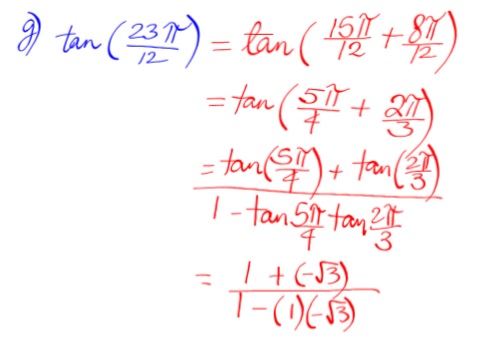 g) tan(23π/12) = tan(15π/12 + 8π/12)
= tan(5π/4 + 2π/3)
= tan(5π/4) + tan(2π/3)
1 - tan 5π/4 tan 2π/3
= 1 + (-√3)
1 - (1)(-√3)